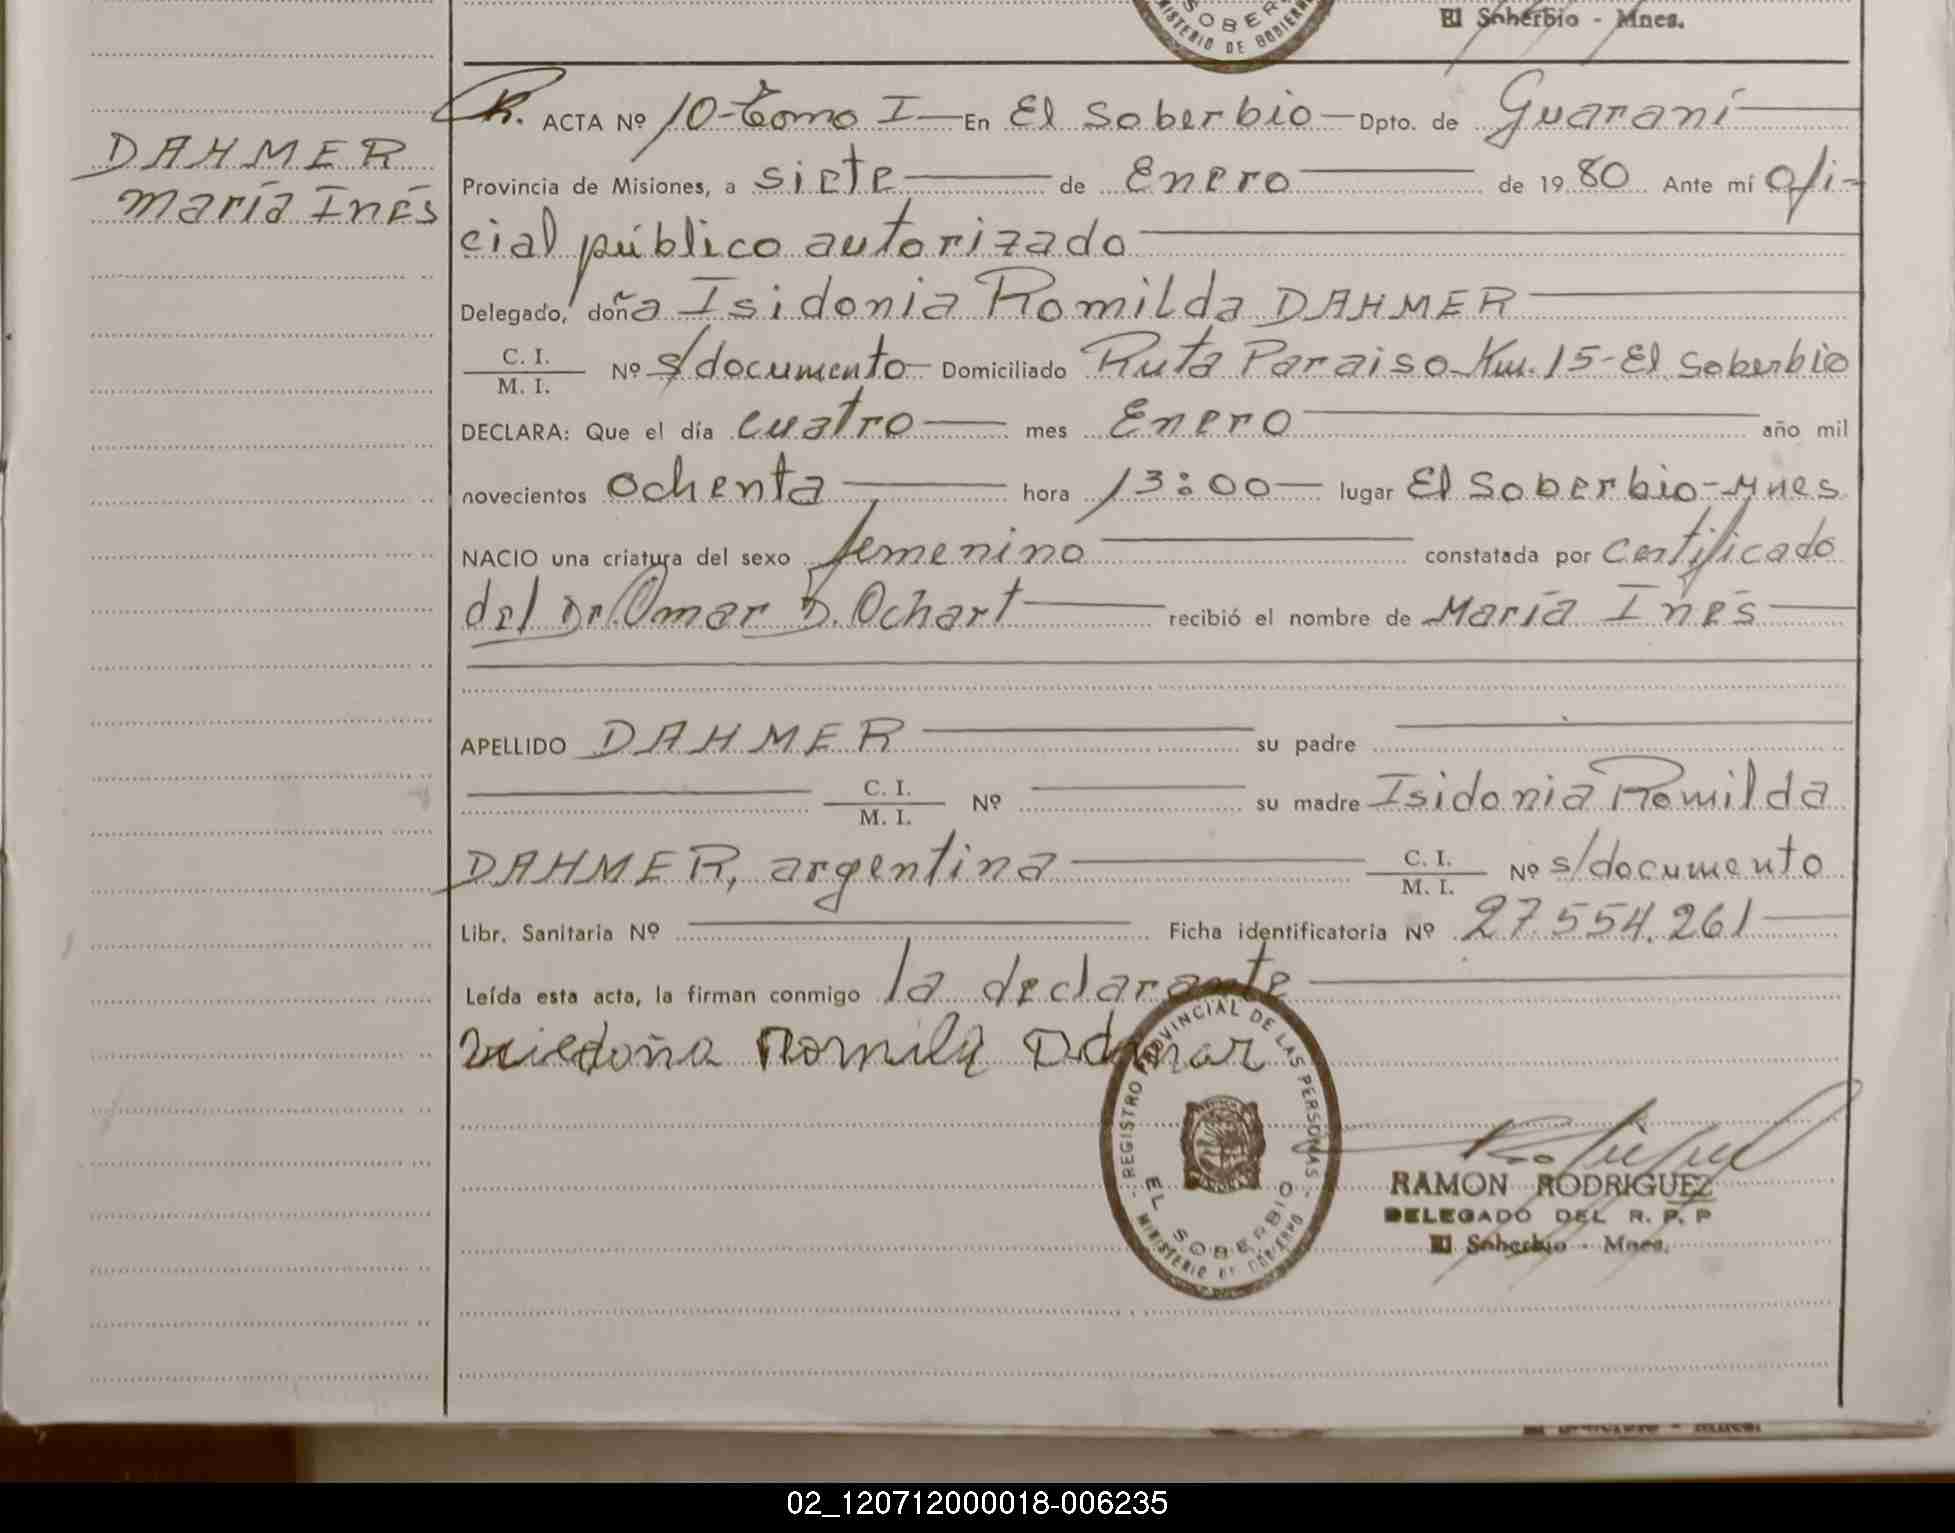 SOBER
MINISTERIO DE GOBIERNO
El Soberbio - Mnes.
DAHMER
María Inés
R. ACTA Nº 10-Tomo I — En El Soberbio — Dpto. de Guaraní
Provincia de Misiones, a siete de Enero de 1980 Ante mí ofi-
cial público autorizado
Delegado, doña Isidonia Romilda DAHMER
C. I.
M. I. Nº s/documento - Domiciliado Ruta Paraiso Km. 15 - El Soberbio
DECLARA: Que el día cuatro mes Enero año mil
novecientos ochenta hora 13:00 lugar El Soberbio-Mnes
NACIO una criatura del sexo femenino constatada por certificado
del Dr. Omar D. Ochart recibió el nombre de María Inés
APELLIDO DAHMER su padre
C. I.
M. I. Nº su madre Isidonia Romilda
DAHMER, argentina C. I.
M. I. Nº s/documento
Libr. Sanitaria Nº Ficha identificatoria Nº 27.554.261
Leída esta acta, la firman conmigo la declarante
REGISTRO PROVINCIAL DE LAS PERSONAS
EL SOBERBIO
MINISTERIO DE GOBIERNO
RAMON RODRIGUEZ
DELEGADO DEL R. P. P
El Soberbio - Mnes.
02_120712000018-006235